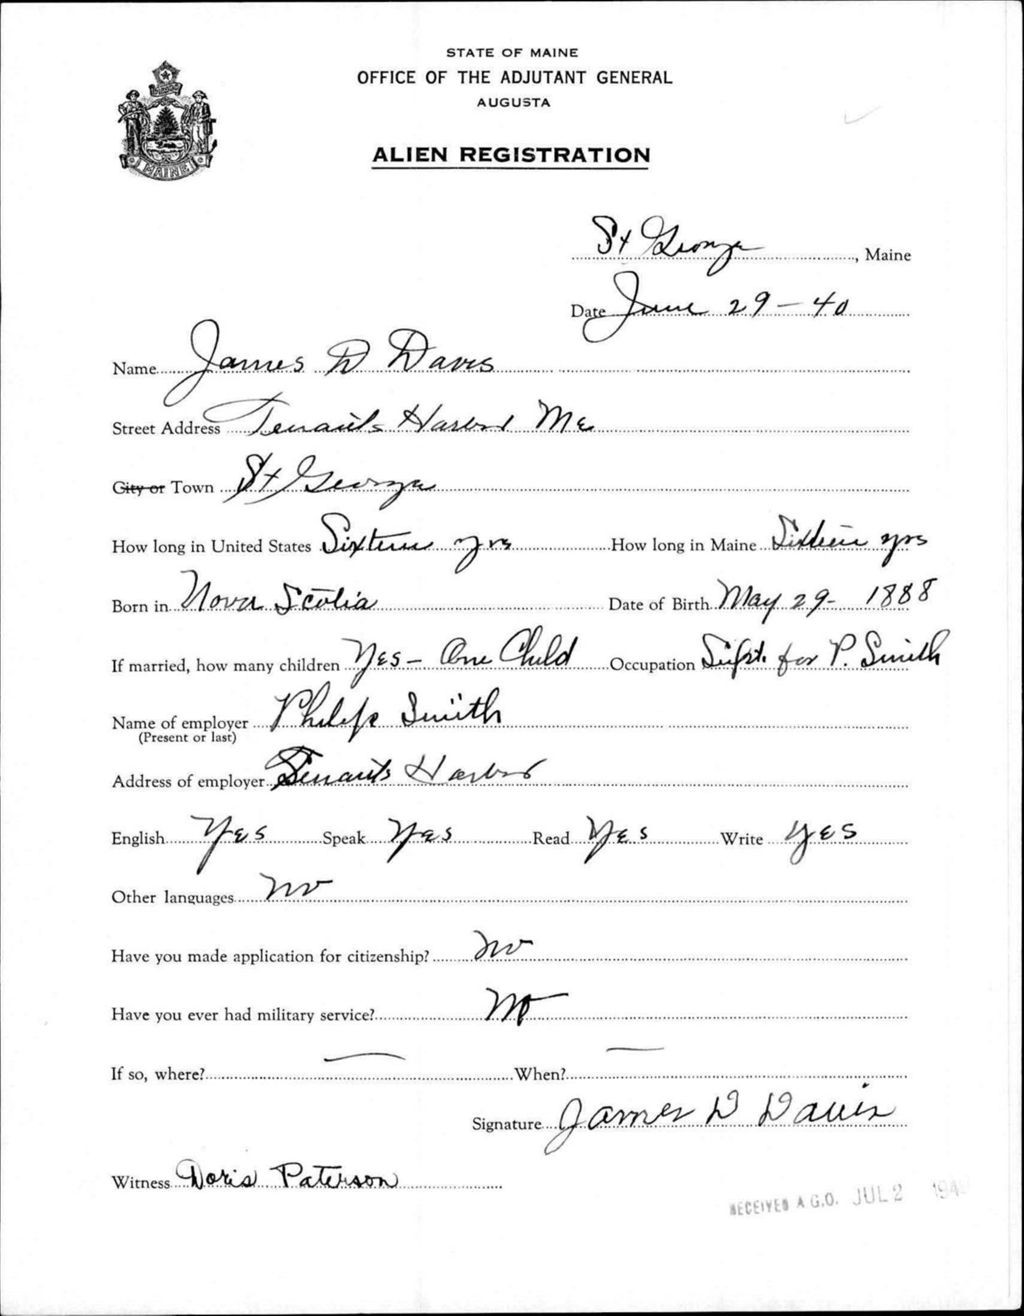 STATE OF MAINE
OFFICE OF THE ADJUTANT GENERAL
AUGUSTA
ALIEN REGISTRATION
MAINE
St George, Maine
Date June 29-40
Name James D Davis
Street Address Tenants Harbor Me
City or Town St George
How long in United States Sixteen yrs How long in Maine Sixteen yrs
Born in Nova Scotia Date of Birth May 29- 1888
If married, how many children Yes- One Child Occupation Supt. for P. Smith
Name of employer Philip Smith
(Present or last)
Address of employer Tenants Harbor
English Yes Speak Yes Read Yes Write Yes
Other languages No
Have you made application for citizenship? No
Have you ever had military service? No
If so, where? — When? —
Signature James D Davis
Witness Doris Paterson
RECEIVED A.G.O. JUL 2 1940